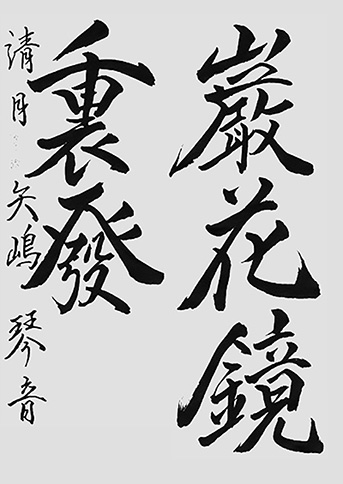 巌花鏡
裏發
清月 矢嶋琴音